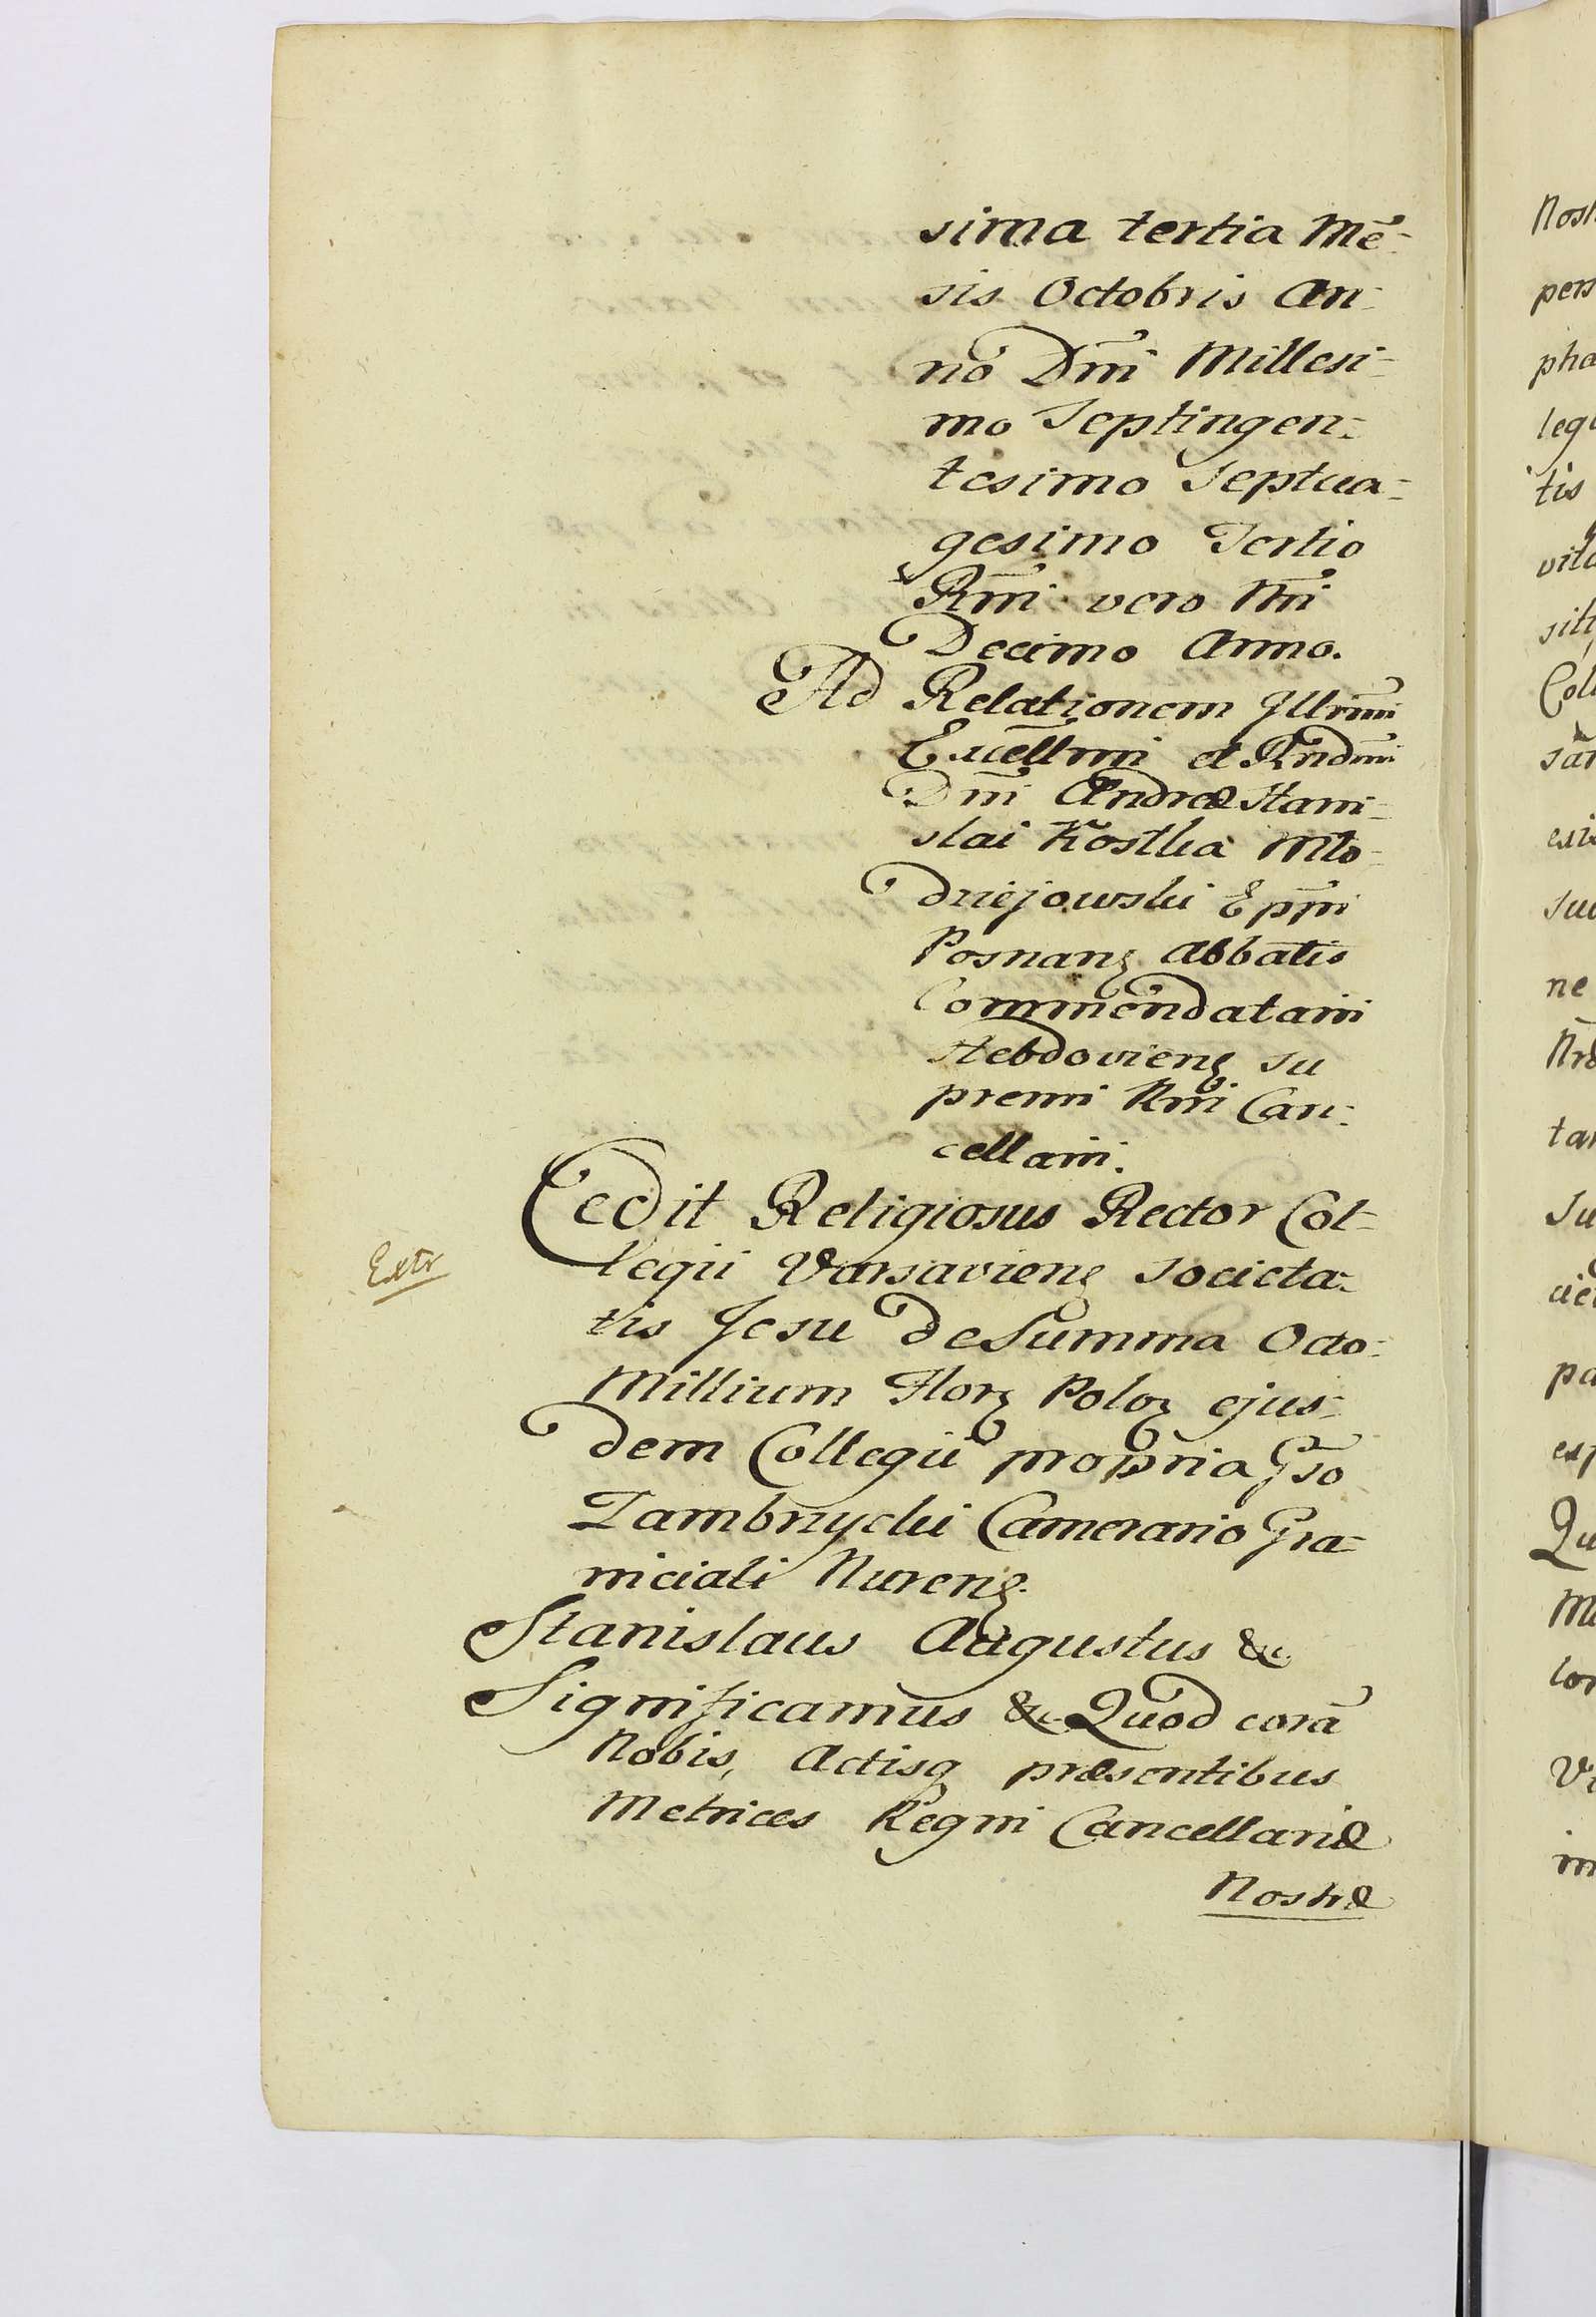 sima tertia Mē-
sis Octobris An-
no Dm̃i Millesi-
mo Septingen-
tesimo Septua-
gesimo Tertio
Rm̃i vero Nr̃i
Decimo Anno.
Ad Relationem Jllrm̃i
Excellm̃i et Rndm̃i
Dm̃i Andreæ Stani-
slai Kostka Mło-
dziejowski Epp̃i
Posnanꝫ Abbatis
Commendatarii
Hebdovienꝫ Su
premi Rm̃i Can-
cellarii.
Cedit Religiosus Rector Col-
Extr
legii Varsavienꝫ Societa-
tis Jesu de Summa Octo-
Millium Florꝫ Poloꝫ ejus-
dem Collegii propria Gso
Zambrzycki Camerario Gra-
niciali Nurenꝫ.
Stanislaus Augustus &c
Significamus &c Quod corā
Nobis, Actisqꝫ præsentibus
Metrices Regni Cancellariæ
Nostræ
Nost
pers
pha
leg
tis
vita
sit
Col
exi
ne
tar
Su
cie
pa
exp
Qu
lor